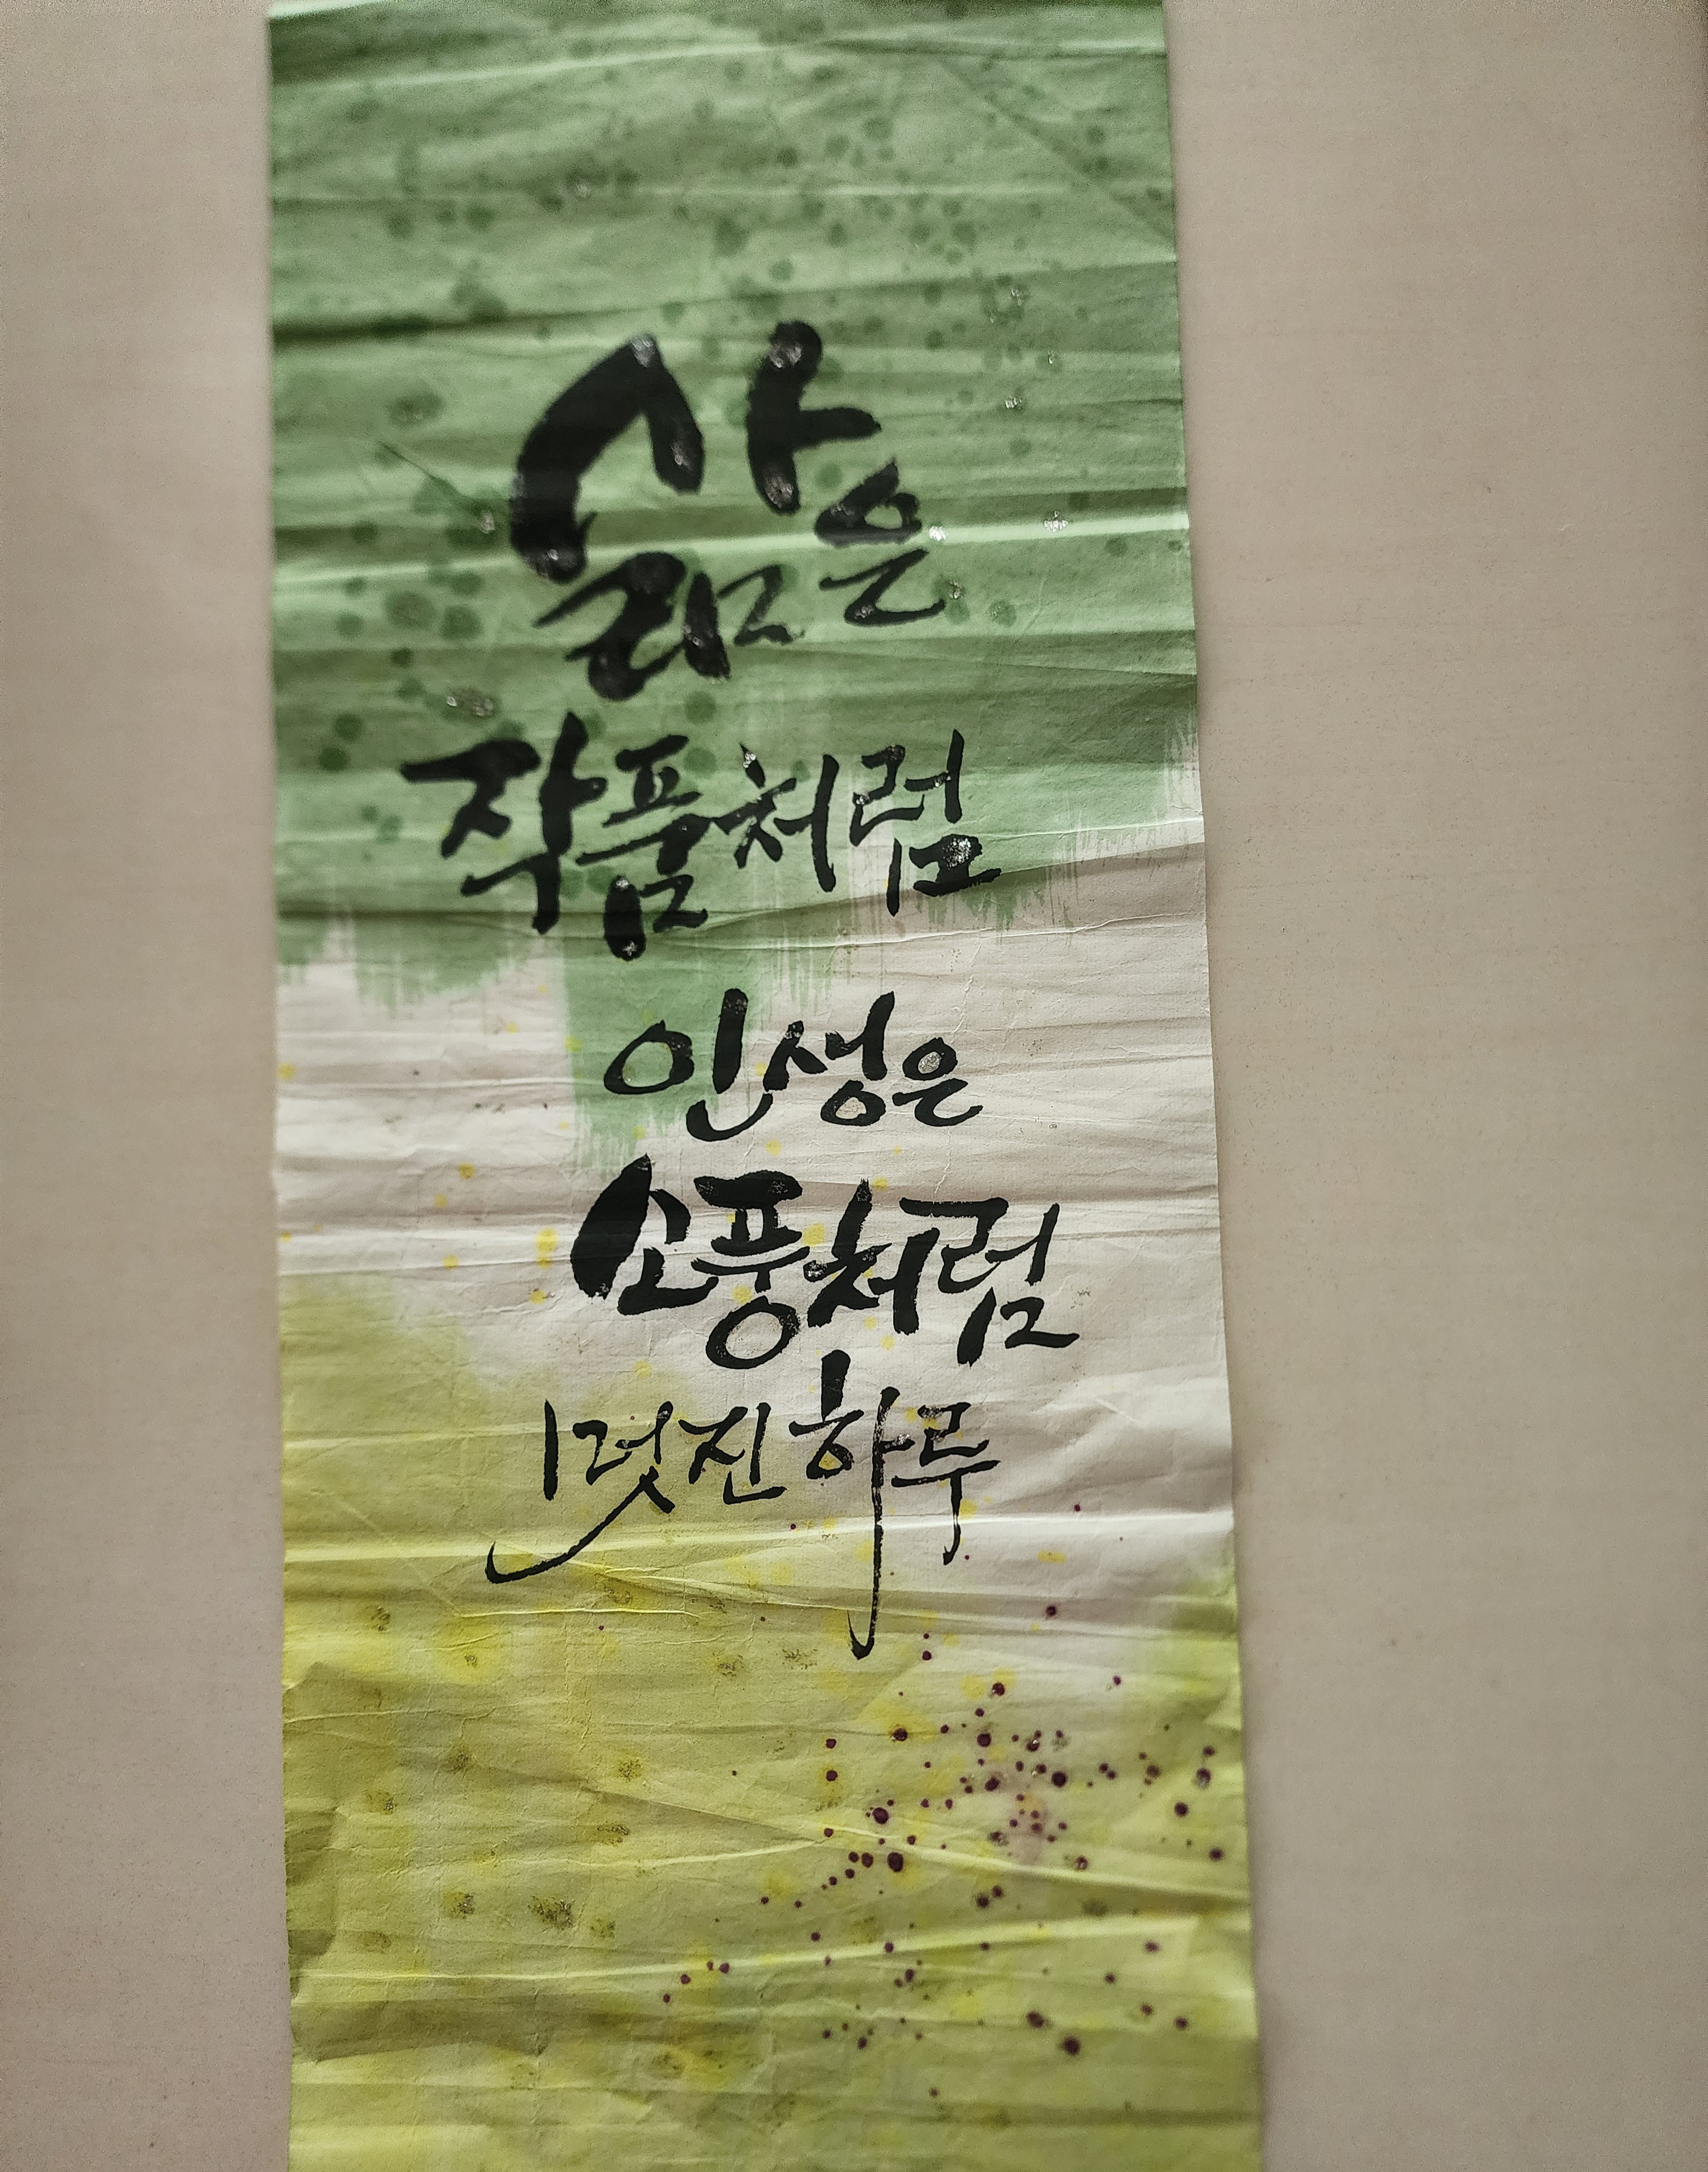 삶은
작품처럼
인생은
소풍처럼
멋진하루